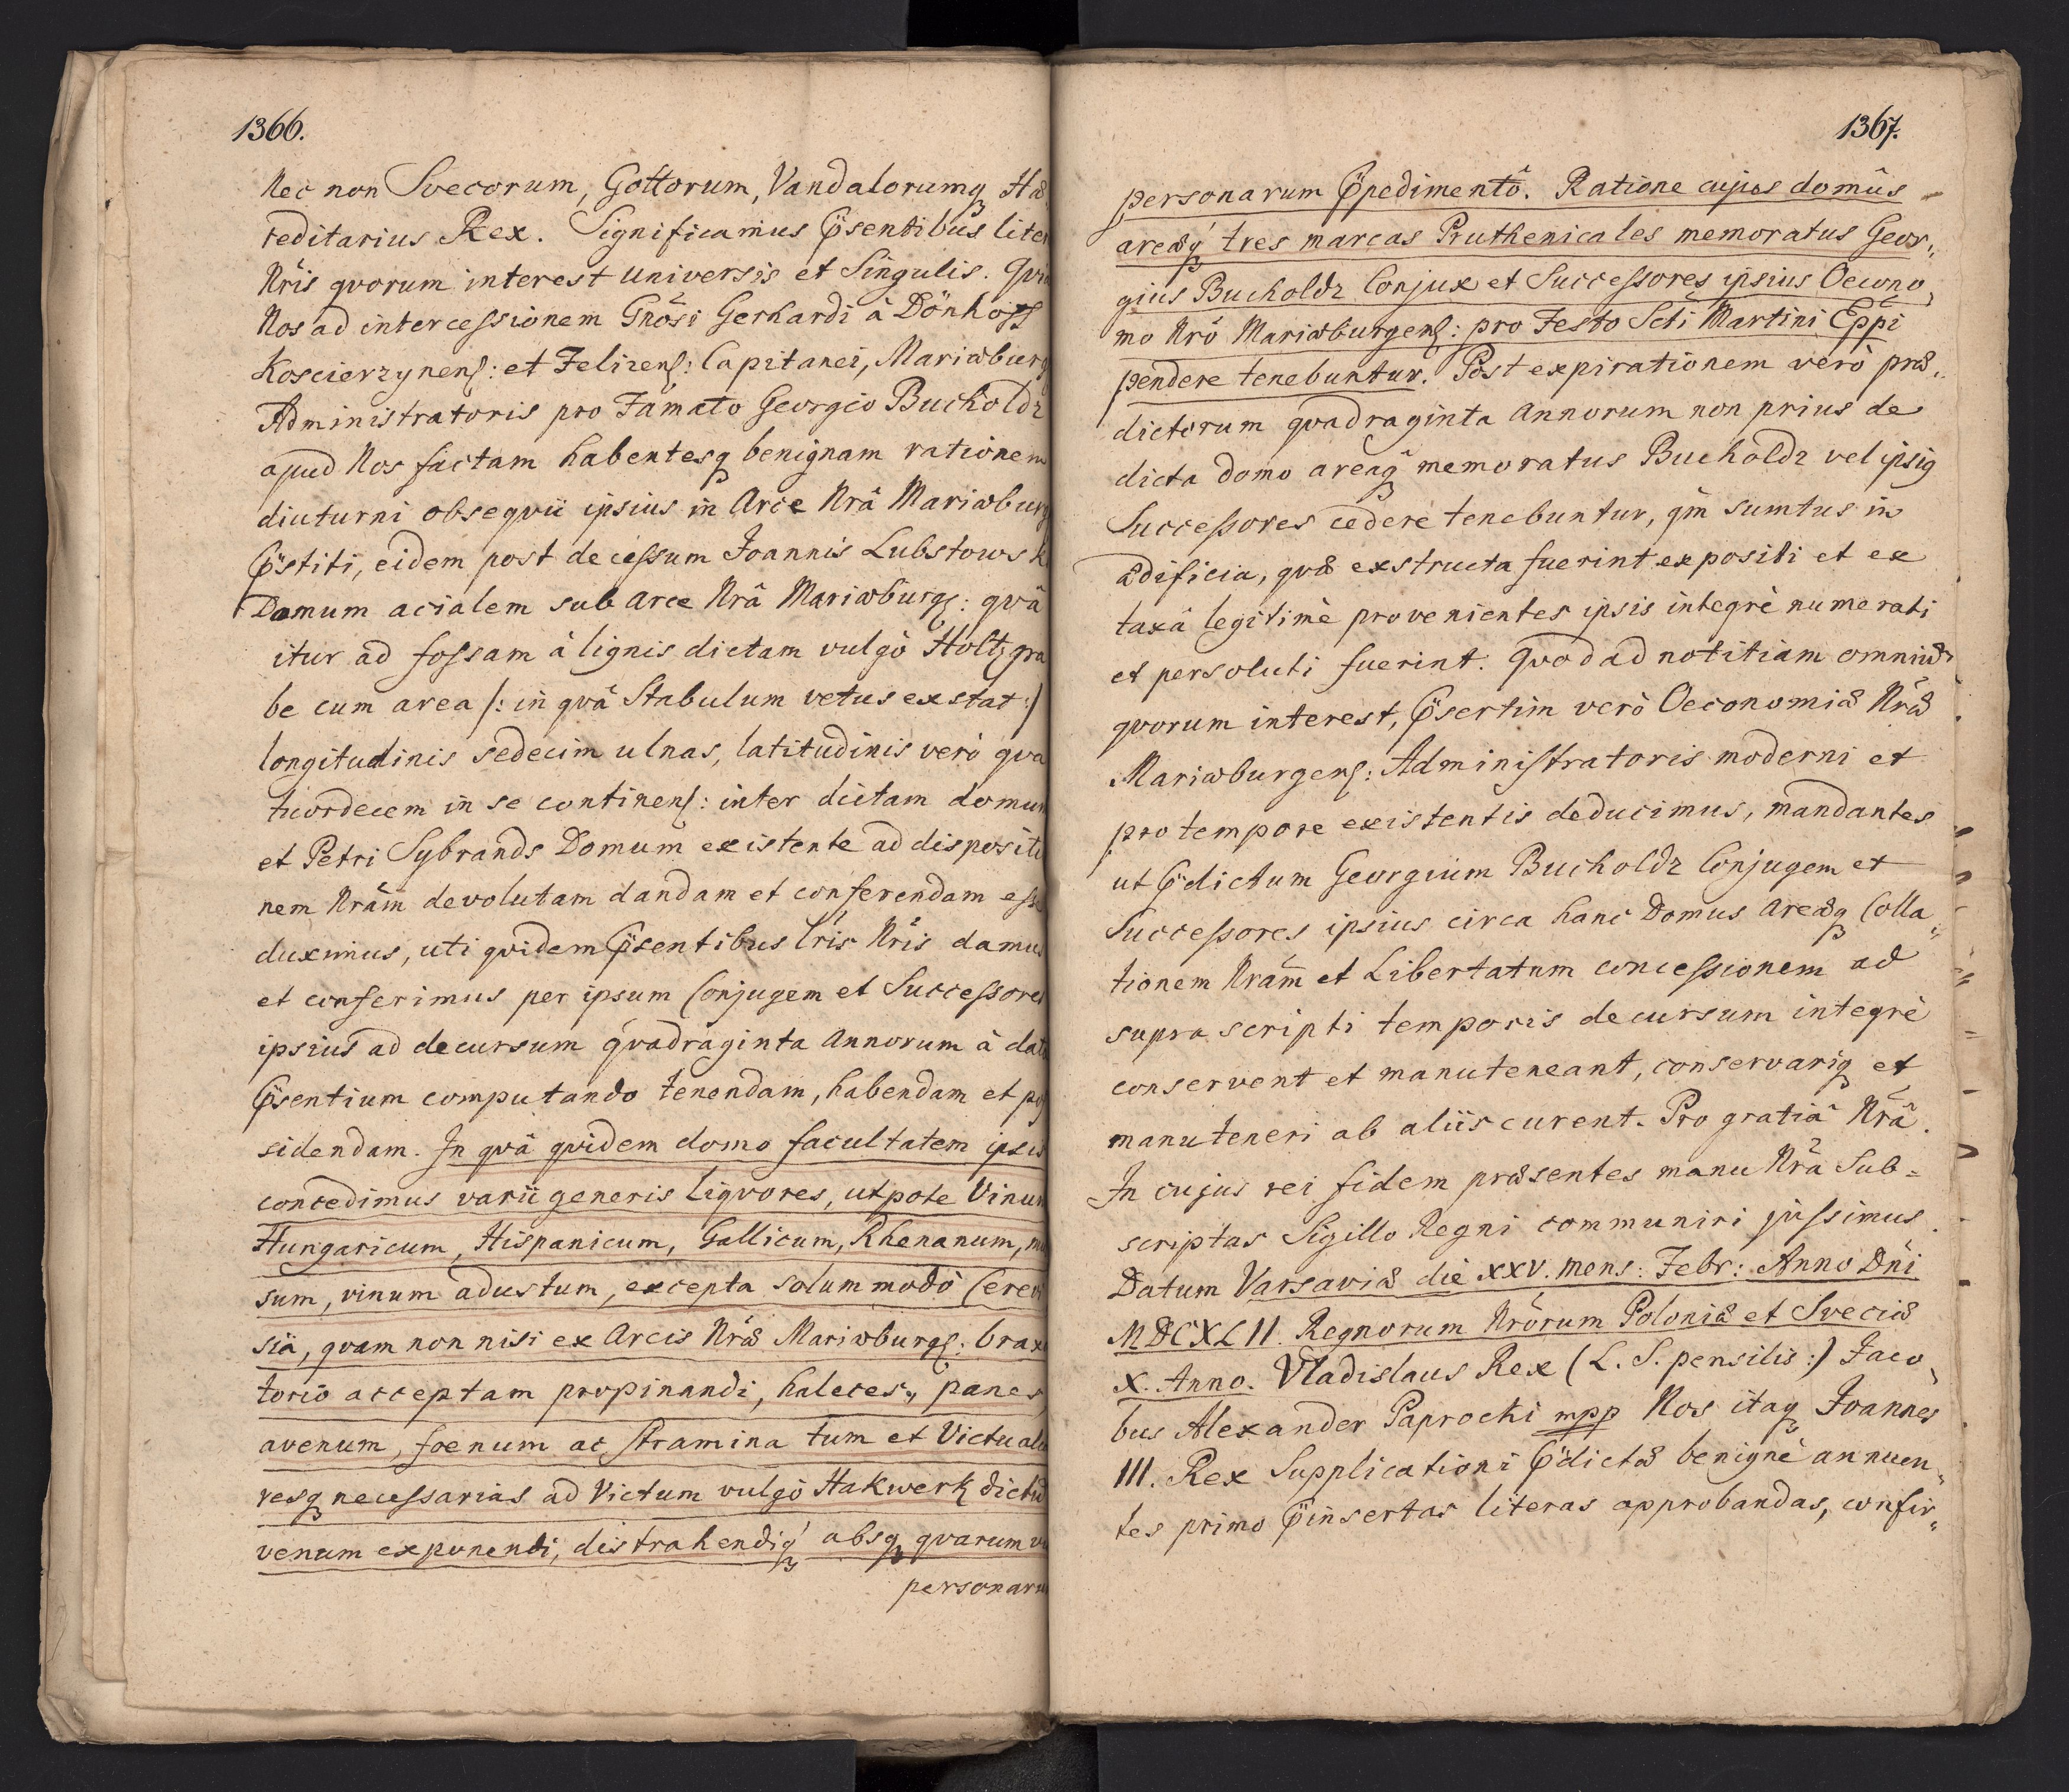 1366.
Nec non Svecorum, Gottorum, Vandalorumq Hæ
reditarius Rex. Significamus Pp̈sentibus liter
Nr̃is qvorum interest universis et Singulis. Qvia
Nos ad intercessionem Gn̄osi Gerhardi à Dönhoff
Koscierzynens: et Felizens: Capitanei, Mariæburg
Administratoris pro Famato Georgio Bucholdz
apud Nos factam habentesq benignam rationem
diuturni obseqvii ipsius in Arce Nr̃â Mariæburg
p̈stiti, eidem post decessum Joannis Lubstowsk
Domum acialem sub Arce Nr̃â Mariæburgs: qvâ
itur ad fossam à lignis dictam vulgò Holtzgra
be cum area /: in qvâ Stabulum vetus exstat :/
longitudinis sedecim ulnas, latitudinis verò qva
tuordecem in se continens: inter dictam domum
et Petri Sybrands Domum existente ad dispositio
nem Nr̃am devolutam dandam et conferendam esse
duximus, uti qvidem p̈sentibus lr̃is Nr̃is damus
et conferimus per ipsum Conjugem et Successores
ipsius ad decursum qvadraginta Annorum à data
p̈sentium computando tenendam, habendam et pos
sidendam. In qvâ qvidem domo facultatem ipsis
concedimus varii generis liqvores, utpote Vinum
Hungaricum, Hispanicum, Gallicum, Rhenanum, mul
sum, vinum adustum, excepta solummodò Cerevi
siâ, qvam non nisi ex Arcis Nr̃æ Mariæburgs: braxa
torio acceptam propinandi, haleces, panes
avenum, foenum ac stramina tum et Victuales
resq necessarias ad Victum vulgò Hakwerk dictum
venum exponendi, distrahendiq absq qvarumvis
personarum
1367.
personarum p̈pedimentô. Ratione cujus domûs
areæq tres marcas Pruthenicales memoratus Geor„
gius Bucholdz Conjux et Successores ipsius Oecono„
mo Nr̃ô Mariæburgens: pro Festo Scti Martini Ep̃pi
pendere tenebuntur. Post expirationem verò præ„
dictorum qvadraginta Annorum non prius de
dicta domo areaq memoratus Bucholdz vel ipsiq
Successores cedere tenebuntur, qm̃ sumtus in
ædificia, qvæ exstructa fuerint expositi et ex
taxâ legitimè provenientes ipsis integrè numerati
et persoluti fuerint. Qvod ad notitiam omniũ
qvorum interest, p̈sertim verò Oeconomiæ Nr̃æ
Mariæburgens: Administratoris moderni et
pro tempore existentis deducimus, mandantes
ut p̈dictum Georgium Bucholdz Conjugem et
Successores ipsius circa hanc Domus Areæq Colla„
tionem Nr̃am et Libertatum concessionem ad
supra scripti temporis decursum integrè
conservent et manuteneant, conservariq et
manuteneri ab aliis curent. Pro gratiâ Nr̃â.
In cujus rei fidem præsentes manu Nr̃a Sub=
scriptas Sigillo Regni communiri jussimus.
Datum Varsaviæ die XXV. mens: Febr: Anno Dn̄i
MDCXLII. Regnorum Nr̃orum Poloniæ et Sveciæ
X. Anno. Vladislaus Rex (L. S. pensilis :) Jaco„
bus Alexander Paprocki mpp Nos itaq Joannes
III. Rex Supplicationi p̈dictæ benignè annuen„
tes primo p̈insertas literas approbandas, confir„